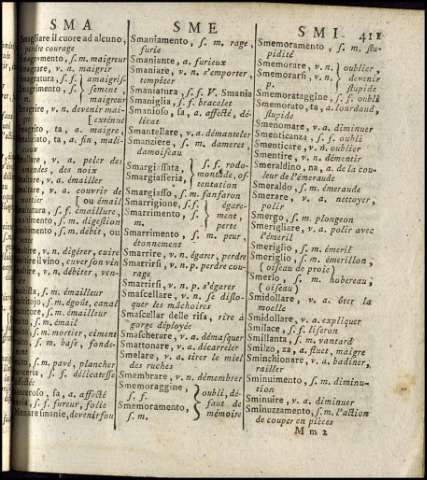 SMA
SME
SMI.
411
Smagliare il cuore ad alcuno,
perdre courage
gimento, s. m. maigreur
grare, v. n. maigrir
gratura, s. f. amaigris-
grimento, s. sement,
m. maigreur
grire, v. n. devenir mai-
[exténué
grito, ta, a. maigre,
liziato, ta, a. fin, mali-
allare, v. a. peler des
andes, des noix
altare, v. a. émailler
altare, v. a. couvrir de
mortier [ou émail
altatura, s. f. émaillure,
altimento, s. m. digestion
mento, s. m. débit, ou
altire, v. n. digérer, cuire
ltire il vino, cuver son vin
altire, v. n. débiter, ven-
dre
altista, s. m. émailleur
s. m. égoût, canal
s. m. émailleur
s. m. émail
s. m. mortier, ciment
s. m. base, fonde-
ment
s. m. pavé, plancher
s. f. délicatesse
ceroso, sa, a. affecté
s. f. fureur, folie
venire in smanie, devenir fou
Smaniamento, s. m. rage,
furie
Smaniante, a. furieux
Smaniare, v. n. s'emporter,
tempêter
Smaniatura, s. f. V. Smania
Smaniglia, s. f. bracelet
Smanioso, sa, a. affecté, dé-
licat
Smantellare, v. a. démanteler
Smanziere, s. m. dameret,
damoiseau
Smargiassata, s. f. rodo-
Smargiasseria, montade, os-
tentation
Smargiasso, s. m. fanfaron
Smarrigione, s. f. égare-
Smarrimento, s. ment,
m. perte
Smarrimento, s. m. peur,
étonnement
Smarrire, v. n. égarer, perdre
Smarrirsi, v. n. p. perdre cou-
rage
Smarrirsi, v. n. p. s'égarer
Smascellare, v. n. se dislo-
quer les mâchoires
Smascellar delle risa, rire à
gorge déployée
Smascherare, v. a. démasquer
Smattonare, v. a. décarreler
Smelare, v. a. tirer le miel
des ruches
Smembrare, v. n. démembrer
Smemoraggine, oubli, dé-
s. f. faut de
Smemoramento, mémoire
s. m.
Smemoramento, s. m. stu-
pidité
Smemorare, v. n. oublier,
Smemorarsi, v. n. devenir
p. stupide
Smemorataggine, s. f. oubli
Smemorato, ta, a. lourdaud,
stupide
Smenomare, v. a. diminuer
Smenticanza, s. f. oubli
Smenticare, v. n. oublier
Smentire, v. n. démentir
Smeraldino, na, a. de la cou-
leur de l'émeraude
Smeraldo, s. m. émeraude
Smerare, v. a. nettoyer,
polir
Smergo, s. m. plongeon
Smerigliare, v. a. polir avec
l'émeril
Smeriglio, s. m. émeril
Smeriglio, s. m. émerillon,
(oiseau de proie)
Smerlo, s. m. hobereau,
(oiseau)
Smidollare, v. a. ôter la
moelle
Smidollare, v. a. expliquer
Smilace, s. f. liseron
Smillanta, s. m. vantard
Smilzo, za, a. fluet, maigre
Sminchionare, v. a. badiner,
railler
Sminuimento, s. m. diminu-
tion
Sminuire, v. a. diminuer
Sminuzzamento, s. m. l'action
de couper en pièces
M m 2